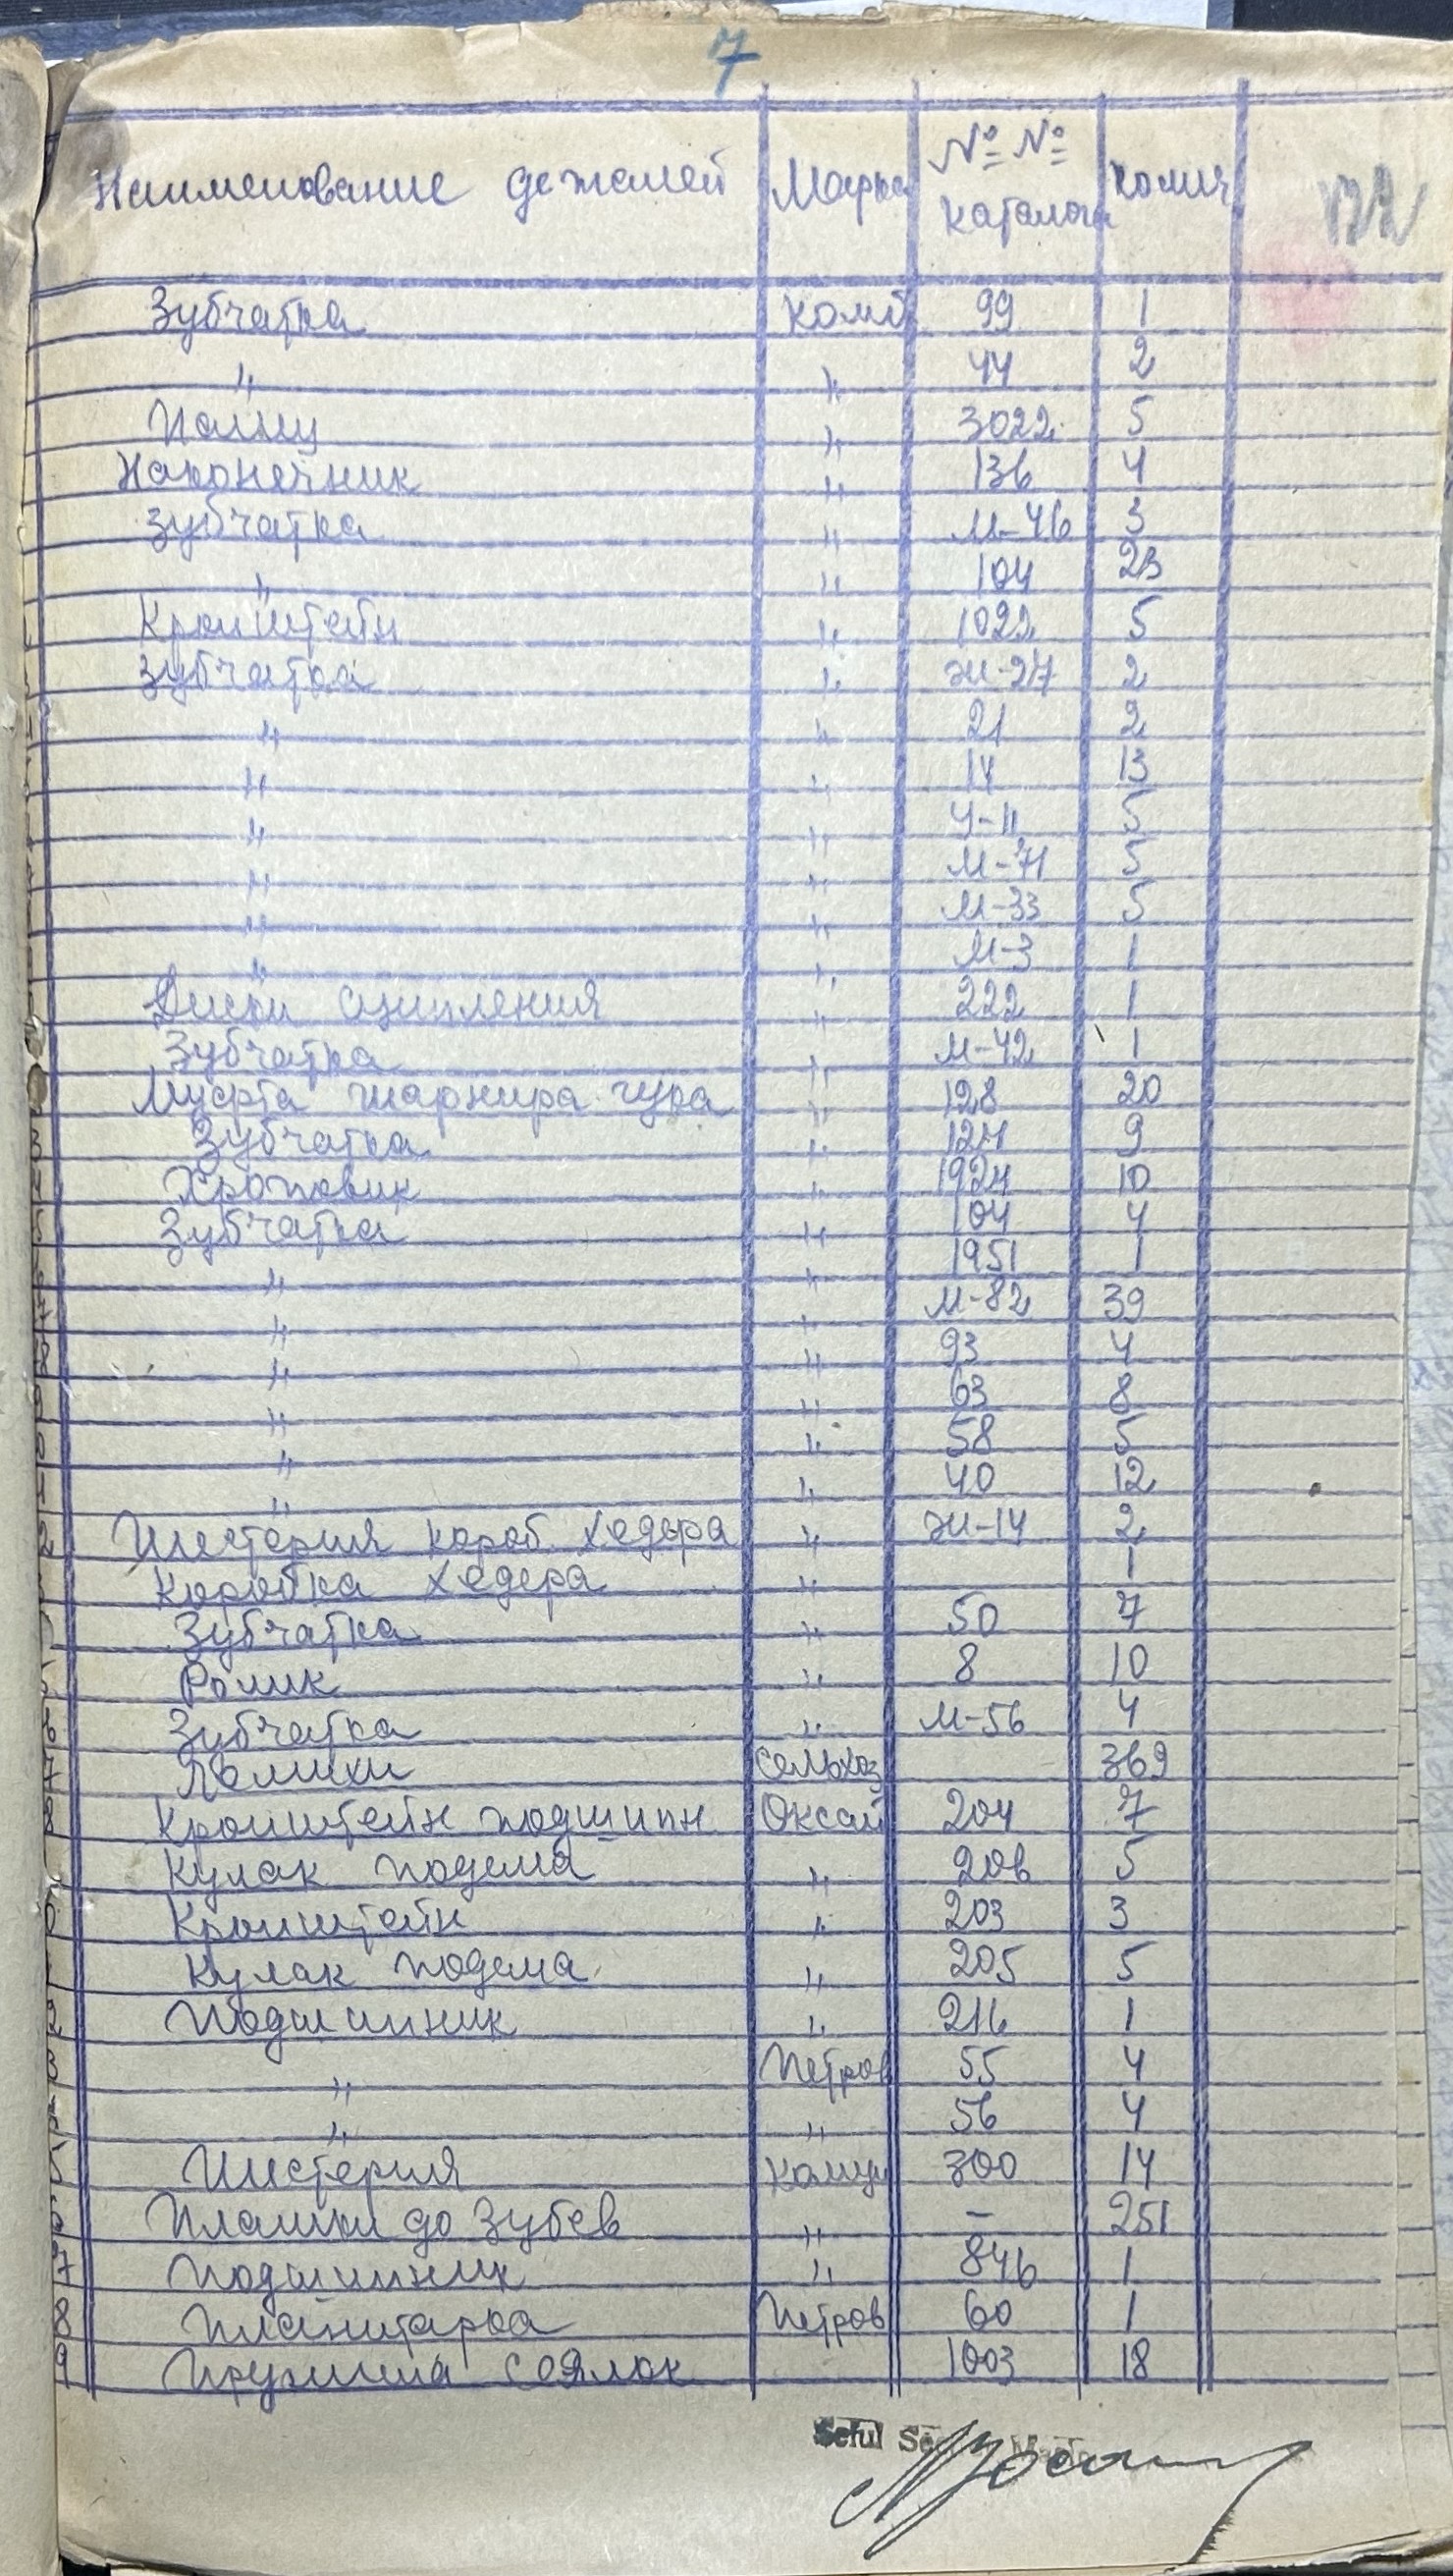 7
Наименование деталей Марка №№ каталога колич
Зубчатка комб 99 1
" " 44 2
Палец " 3022 5
Наконечник " 136 4
Зубчатка " М-46 3
" " 104 23
Кронштейн " 1022 5
Зубчатка " 2
" " 21 2
" " 14 13
" " У-11 5
" " М-71 5
" " М-33 5
" " М-3 1
Диски сципления " 222 1
Зубчатка " М-42 1
Муфта шарнира " 128 20
Зубчатка " 9
Храповик " 10
Зубчатка " 104 4
" " 1951 1
" " М-82 39
" " 93 4
" " 63 8
" " 58 5
" " 40 12
Шестерня короб. хедера " 2
Коробка хедера " 1
Зубчатка " 50 7
Ролик " 8 10
Зубчатка " М-56 4
Лемихи сельхоз 369
Кронштейн подшипн. Оксай 204 7
Кулак подема " 206 5
Кронштейн " 203 3
Кулак подема " 205 5
Подшипник " 216 1
" Петров 55 4
" " 56 4
Шестерня 300 14
Плашки до зубев " – 251
7 Подшипник " 846 1
8 Петров 60 1
9 Пружина сеялок 1003 18
Seful